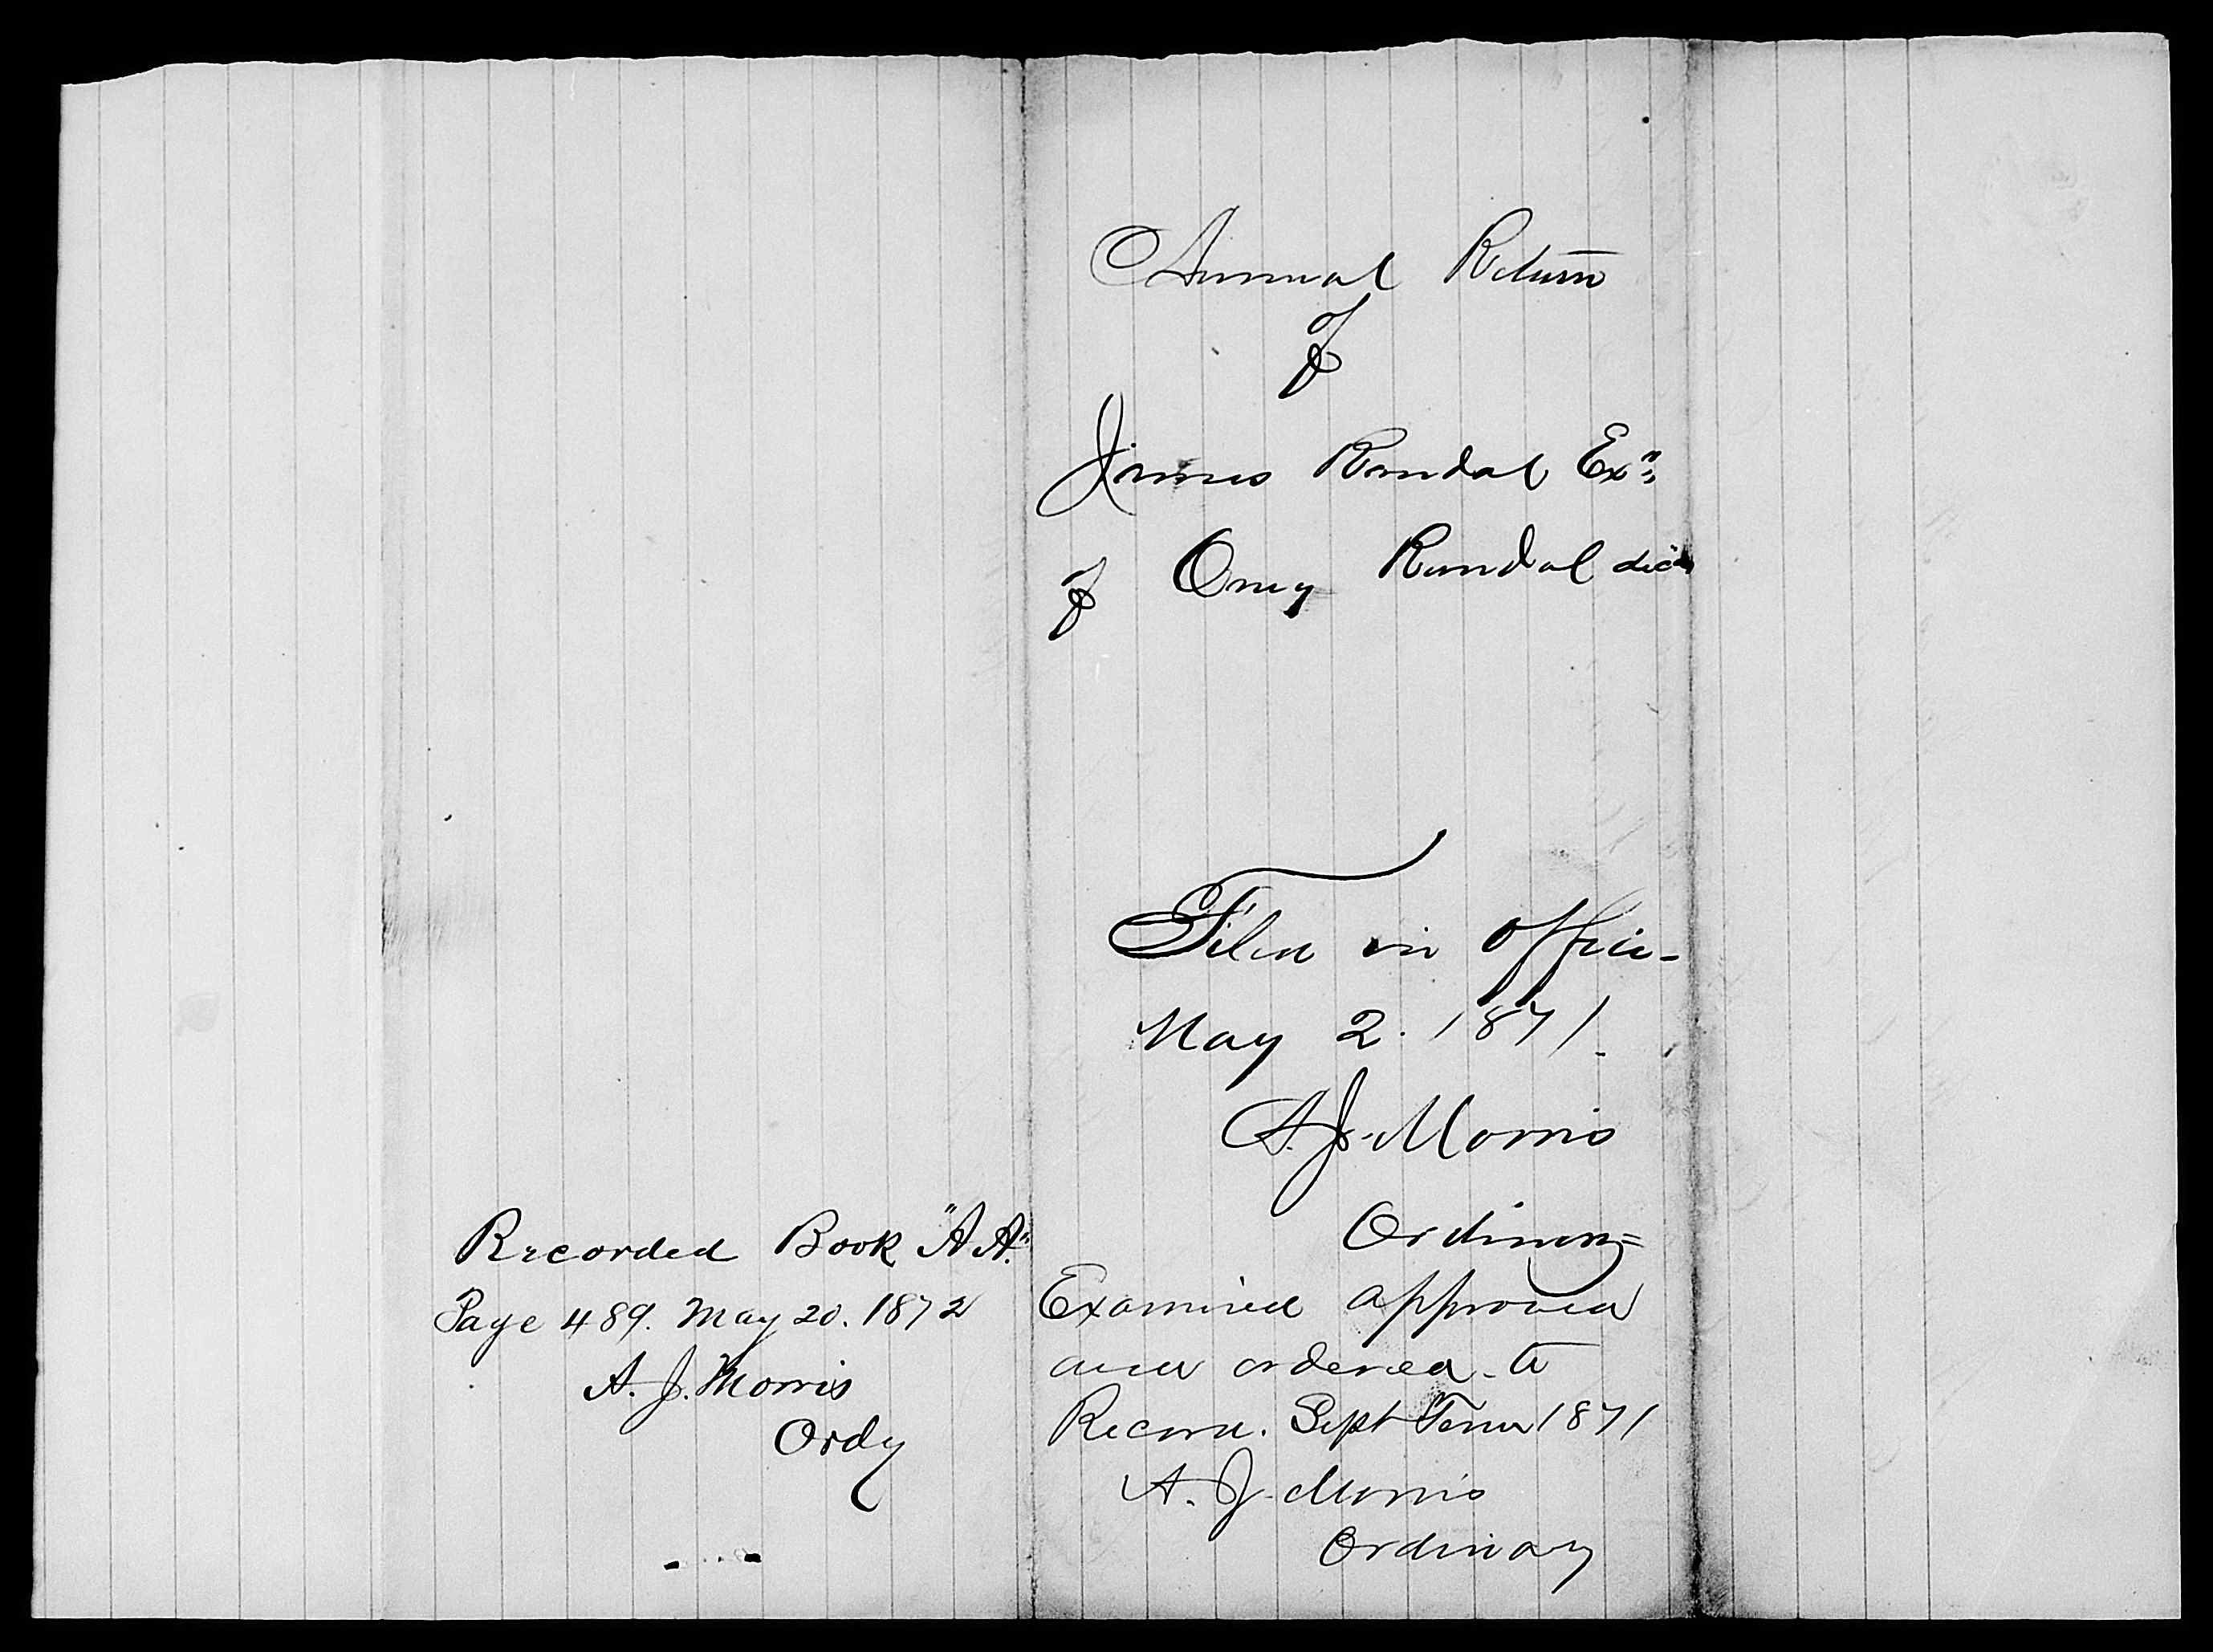 Annual Return
of
James Randal Exr
of Oney Randal decd
Filed in office
May 2. 1871.
A. J. Morris
Ordinary
Examined approved
and ordered to
Record. Sept Term 1871
A. J. Morris
Ordinary
Recorded Book "A A."
Page 489. May 20. 1872
A. J. Morris
Ordy